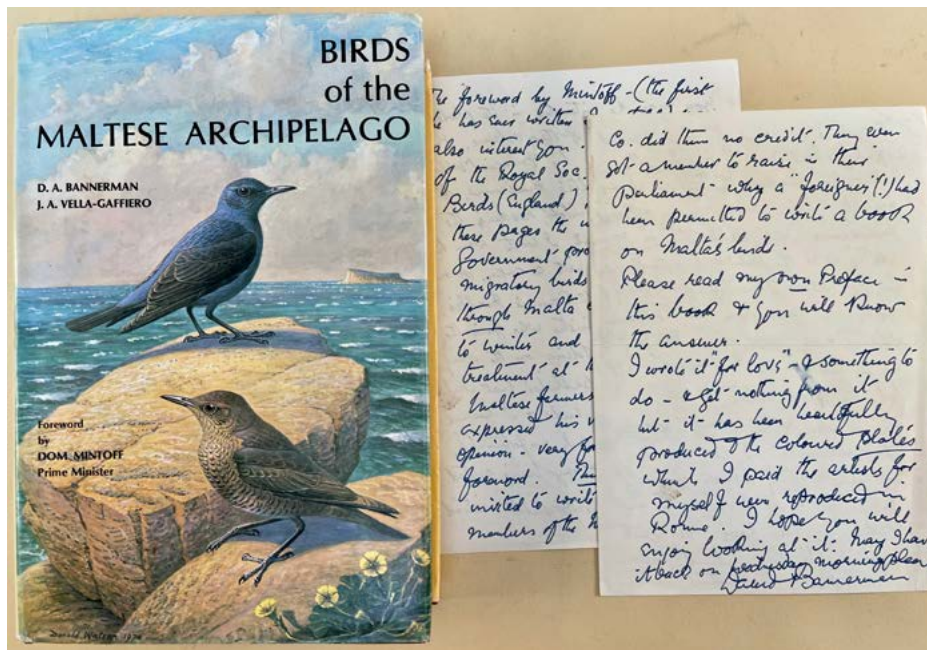 BIRDS
of the
MALTESE ARCHIPELAGO
D. A. BANNERMAN
J. A. VELLA-GAFFIERO
Foreword
by
DOM MINTOFF
Prime Minister
Donald Watson 1974
The foreword by Mintoff - (the first
he has ever written
also interest you.
of the Royal Soc.
Birds (England)
these pages the
Government
migratory birds
through Malta
to winter and
treatment at
Maltese farmers
expressed his
opinion - very
foreword.
invited to write
members of the
Co. did them no credit. They even
got a member to raise in their
Parliament why a "foreigner" (!) had
been permitted to write a book
on Malta's birds.
Please read my own Preface in
this book & you will know
the answer.
I wrote it "for love" & something to
do - & get nothing from it
but it has been beautifully
produced & the coloured plates
which I paid the artists for
myself were reproduced in
Rome. I hope you will
enjoy looking at it. May I have
it back on Wednesday morning please
David Bannerman